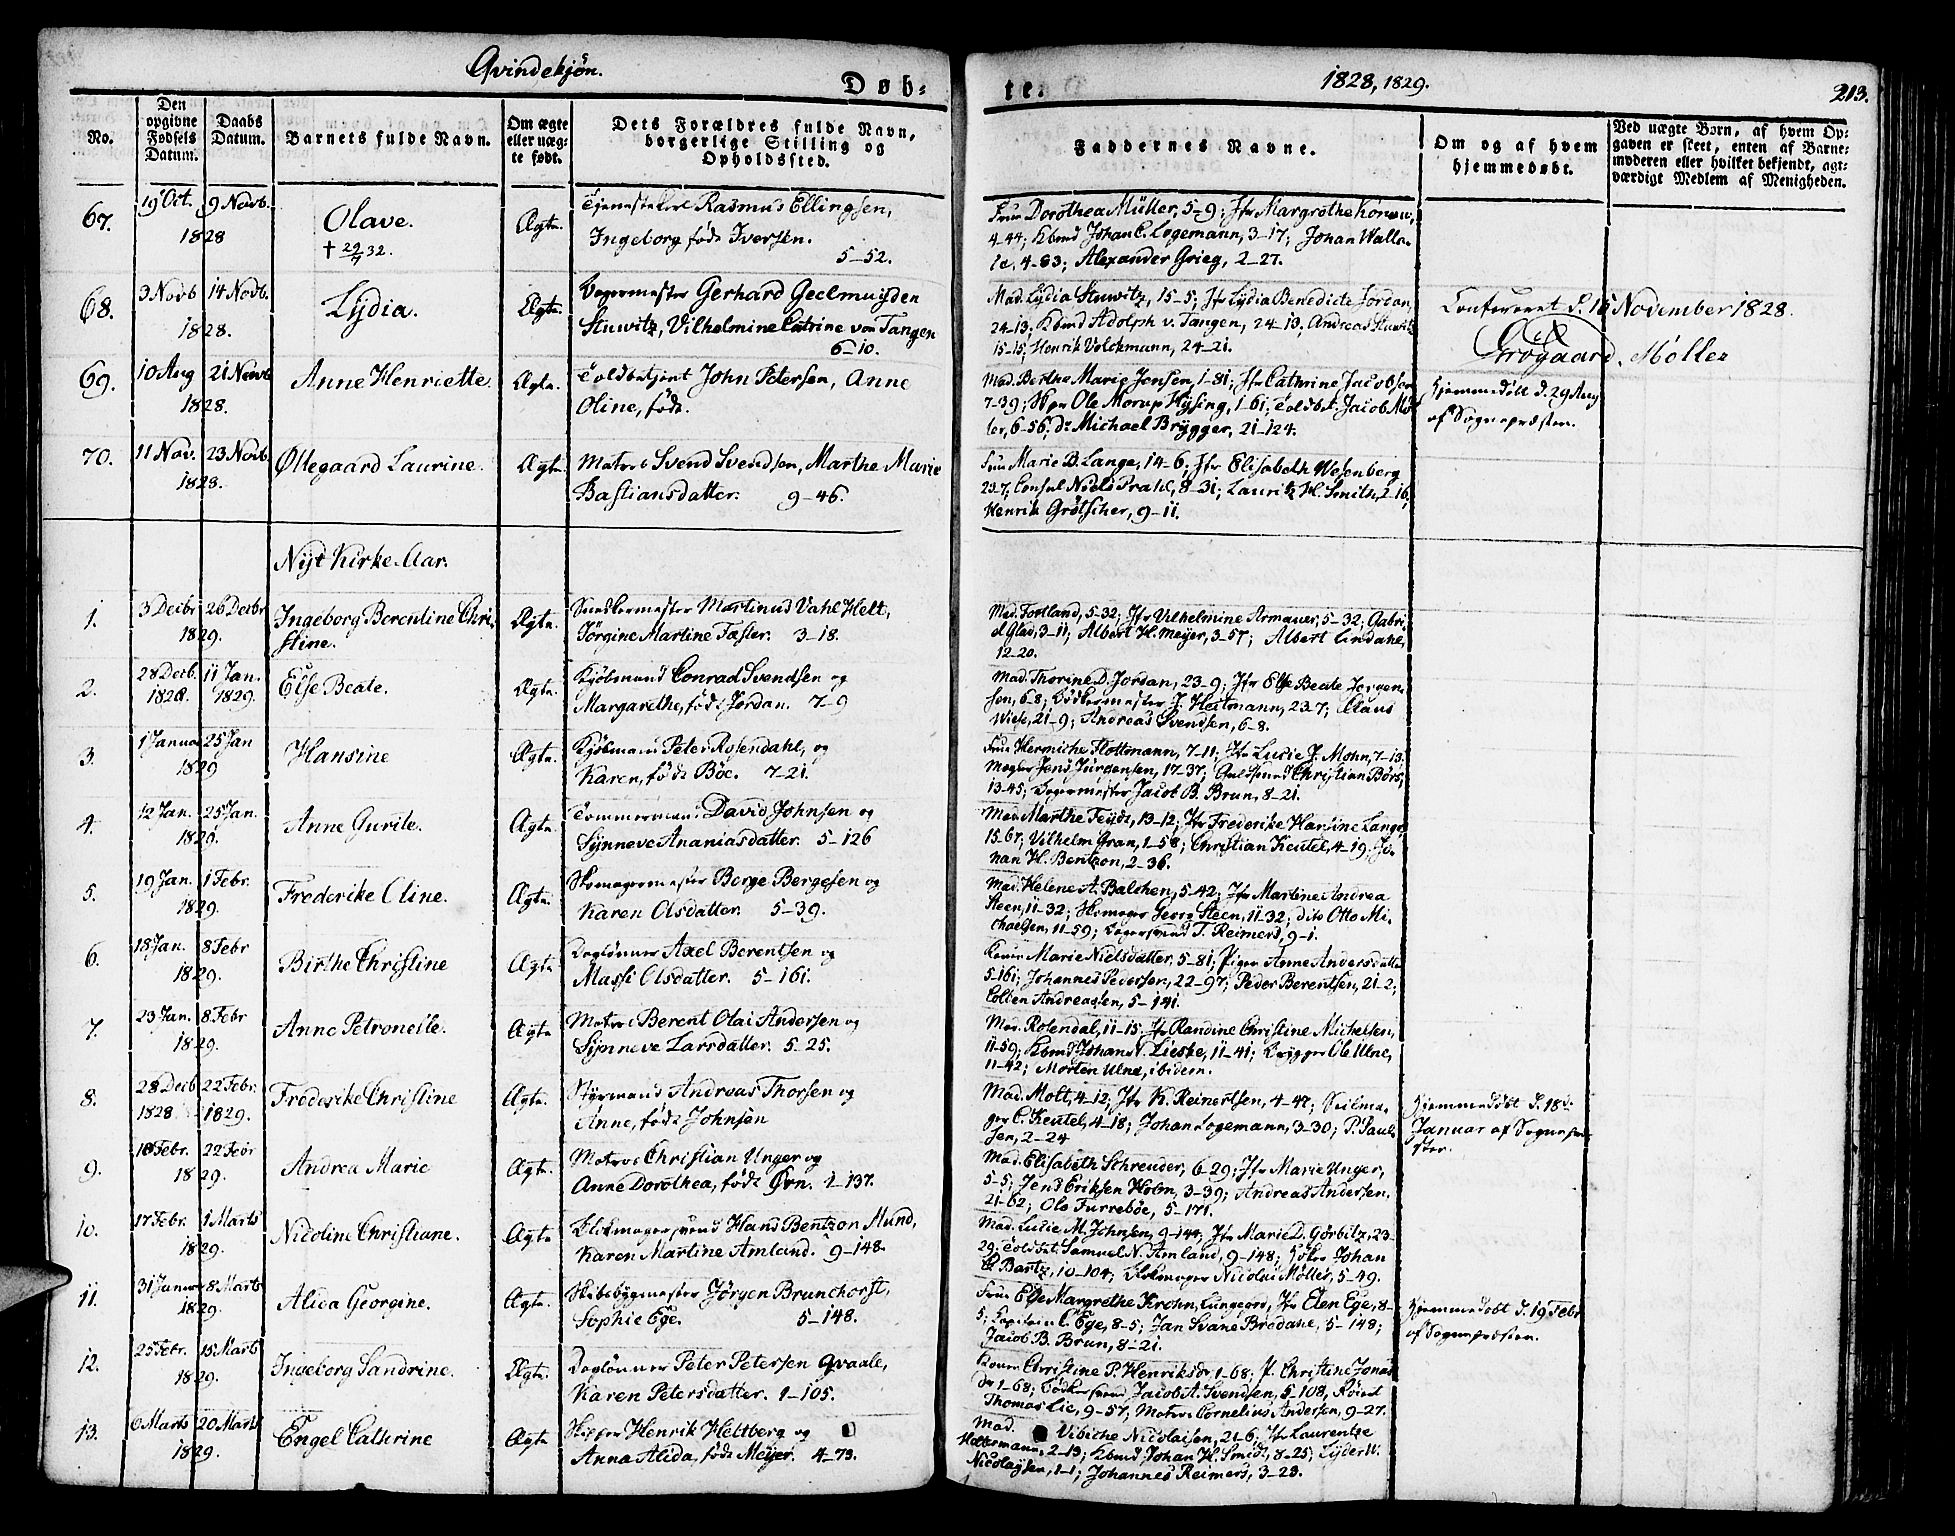 Qvindekjøn.
Døb-
te.
1828, 1829.
213.
No.
Den opgivne Fødsels Datum.
Daabs Datum.
Barnets fulde Navn.
Om ægte eller uægte født.
Dets Forældres fulde Navn, borgerlige Stilling og Opholdssted.
Faddernes Navne.
Om og af hvem hjemmedøbt.
Ved uægte Børn, af hvem Opgaven er skeet, enten af Barnemoderen eller hvilket bekjendt, agtværdigt Medlem af Menigheden.
67.
19 Oct. 9 Novb.
1828
Olave.
† 29/7 32.
Ægte.
Rasmus Ellingsen,
Ingeborg født Iversen.
5-52.
Frue Dorothea Müller, 5-9; Jfr Margrethe Konow,
4-44; Kbmd Johan C. Logemann, 3-17; Johan Walla-
ce, 4-83; Alexander Grieg, 2-27.
68.
3 Novb 14 Novb.
1828.
Lydia.
Ægte.
Bagermester Gerhard Geelmuyden
Stuwitz, Vilhelmine Catrine von Tangen
6-10.
Mad. Lydia Stuwitz, 15-5; Jfr Lydia Benedicte Jordan,
24-13; Kbmd Adolph v. Tangen, 24-13, Andreas Stuwitz
15-15, Henrik Volckmann, 24-21.
Confereret d. 15 November 1828.
Grøgaard. Møller
69.
10 Aug 21 Novb
1828.
Anne Henriette.
Ægte.
Toldbetjent John Petersen, Anne
Oline, født.
Mad. Berthe Marie Jensen, 1-81; Jfr Cathrine Jacobsen
7-39; Skpr Ole Morup Hysing, 1-61; Toldbt. Jacob Møl-
ler, 6-56; do Michael Brygger, 21-124.
Hjemmedøbt d. 29 Aug
af Sognepræsten.
70.
11 Nov. 23 Novb.
1828.
Øllegaard Laurine.
Ægte.
Matros Svend Svendsen, Marthe Marie
Bastiansdatter. 9-46.
Frue Marie B. Lange, 14-6; Jfr Elisabeth Wesenberg
23-7, Consul Niels Prahl, 8-31; Lauritz H. Smith, 2-16,
Henrik Grøtscher, 9-11.
Nyt Kirke-Aar.
1.
3 Decbr 26 Decbr
1829.
Ingeborg Berentine Chri-
stine.
Ægte.
Snedkermester Martinus Vahl Helt,
Jörgine Martine Fæster. 3-18.
Mad. Fortland, 5-32; Jfr Vilhelmine Armauer, 5-32; Gabri-
el Glad, 3-11; Albert H. Meyer, 3-57; Albert Lindahl,
12-20.
2.
28 Decb. 11 Jan.
1828. 1829.
Else Beate.
Ægte.
Kjøbmand Conrad Svendsen og
Margarethe, født Jordan. 7-9
Mad. Thorine D. Jordan, 23-9; Jfr Else Beate Jørgen-
sen, 6-8; Bødkermester J. Heitmann, 23-7; Claus
Wiese, 21-9; Andreas Svendsen, 6-8.
3.
1 Januar 25 Jan
1829
Hansine
Ægte.
Kjøbmand Peter Rosendahl, og
Karen, født Böe. 7-21.
Frue Hermiche Flottmann, 7-11; Jfr Lucie J. Mohn, 7-13.
Megler Jens Jürgensen, 17-37; Guldsmed Christian Börs,
13-45; Bagermester Jacob B. Brun, 8-21.
4.
12 Jan. 25 Jan.
1829.
Anne Gurile.
Ægte.
Tømmermand David Johnsen og
Synneve Ananiasdatter. 5-126
Mad. Marthe Feydt, 13-12; Jfr Frederike Hansine Lange,
15-67; Vilhelm Gran, 1-58; Christian Keutel, 4-19; Jo-
han H. Bentzon, 2-36.
5.
19 Jan. 1 Febr.
1829.
Frederike Cline.
Ægte.
Skomagermester Børge Børgesen og
Karen Olsdatter. 5-39.
Mad. Helene A. Balchen, 5-42; Jfr Martine Andrea
Steen, 11-32; Skomager Georg Steen, 11-32; dito Otto Mi-
chaelsen, 11-59; Bagersvend T. Reimers, 9-1.
6.
18 Jan. 8 Febr
1829.
Birthe Christine
Ægte
Daglønner Axel Berentsen og
Massi Olsdatter. 5-161.
Konen Marie Nielsdatter, 5-81; Pigen Anne Andersdatter
5-161; Johannes Pedersen, 22-97; Peder Berentsen, 21-2;
Colben Andreassen, 5-141.
7.
23 Jan. 8 Febr
1829.
Anne Petronelle.
Ægte
Matros Berent Olai Andersen og
Synneve Larsdatter. 5-25.
Mad. Rosendal, 11-15; Jfr Randine Christine Michelsen,
11-59; Kbmd Johan N. Lieske, 11-41; Brygger Ole Ulne,
11-42; Morten Ulne, ibidem.
8.
28 Decb 22 Febr.
1828 1829.
Frederike Christine
Ægte.
Styrmand Andreas Thorsen og
Anne, født Johnsen
Mad. Molt, 4-12; Jfr K. Reinertsen, 4-47; Seilma-
ger C. Keutel, 4-18; Johan Logemann, 3-30; P. Paul-
sen, 2-24
Hjemmedøbt d. 18de
Januar af Sognepræ-
sten.
9.
18 Febr. 22 Febr
1829.
Andrea Marie
Ægte.
Matros Christian Unger og
Anne Dorothea, født Ørn. 1-137.
Mad. Elisabeth Schreuder, 6-29; Jfr Marie Unger,
5-5; Jens Eriksen Holm, 3-39; Andreas Andersen,
21-62; Ole Furrebøe, 5-171.
10.
17 Febr. 1 Marts
1829.
Nicoline Christiane.
Ægte.
Blokmagersvend Hans Bentzon Mund,
Karen Martine Amland. 9-148.
Mad. Lucie M. Johnsen, 9-144; Jfr Marie D. Görbitz, 23-
29; Toldbt. Samuel N. Amland, 9-148; Høker Johan
C. Bartz, 10-104; Blokmager Nicolai Møller, 5-49.
11.
31 Januar 8 Marts
1829.
Alida Georgine.
Ægte.
Skibsbygmester Jørgen Brunchorst,
Sophie Ege. 5-148.
Frue Else Margrethe Krohn, Lungegrd, Jfr Elen Ege, 8-
5; Capitain C. Ege, 8-5; Jan Svane Bredahl, 5-148;
Jacob B. Brun, 8-21.
Hjemmedøbt d. 19 Febr
af Sognepræsten.
12.
25 Febr. 15 Marts
1829.
Ingeborg Sandrine.
Ægte.
Daglønner Peter Petersen Qvaale,
Karen Petersdatter. 1-105.
Konen Christine P. Henriksdr 1-68; P. Christine Jonas
dr 1-68; Bødkersvend Jacob A. Svendsen, 5-108, Knud
Thomas Lie, 9-57; Matros Cornelius Andersen, 9-27.
13.
6 Marts 20 Marts
1829.
Engel Cathrine
Ægte
Skipper Henrik Heltberg og
Anna Alida, født Meyer. 4-73.
Mad. Vibiche Nicolaisen, 21-6; Jfr Laurentze
Holtermann, 2-13; Kbmd Johan H. Smidt, 8-25; Lyder W.
Nicolaysen, 1-1; Johannes Reimers, 3-23.